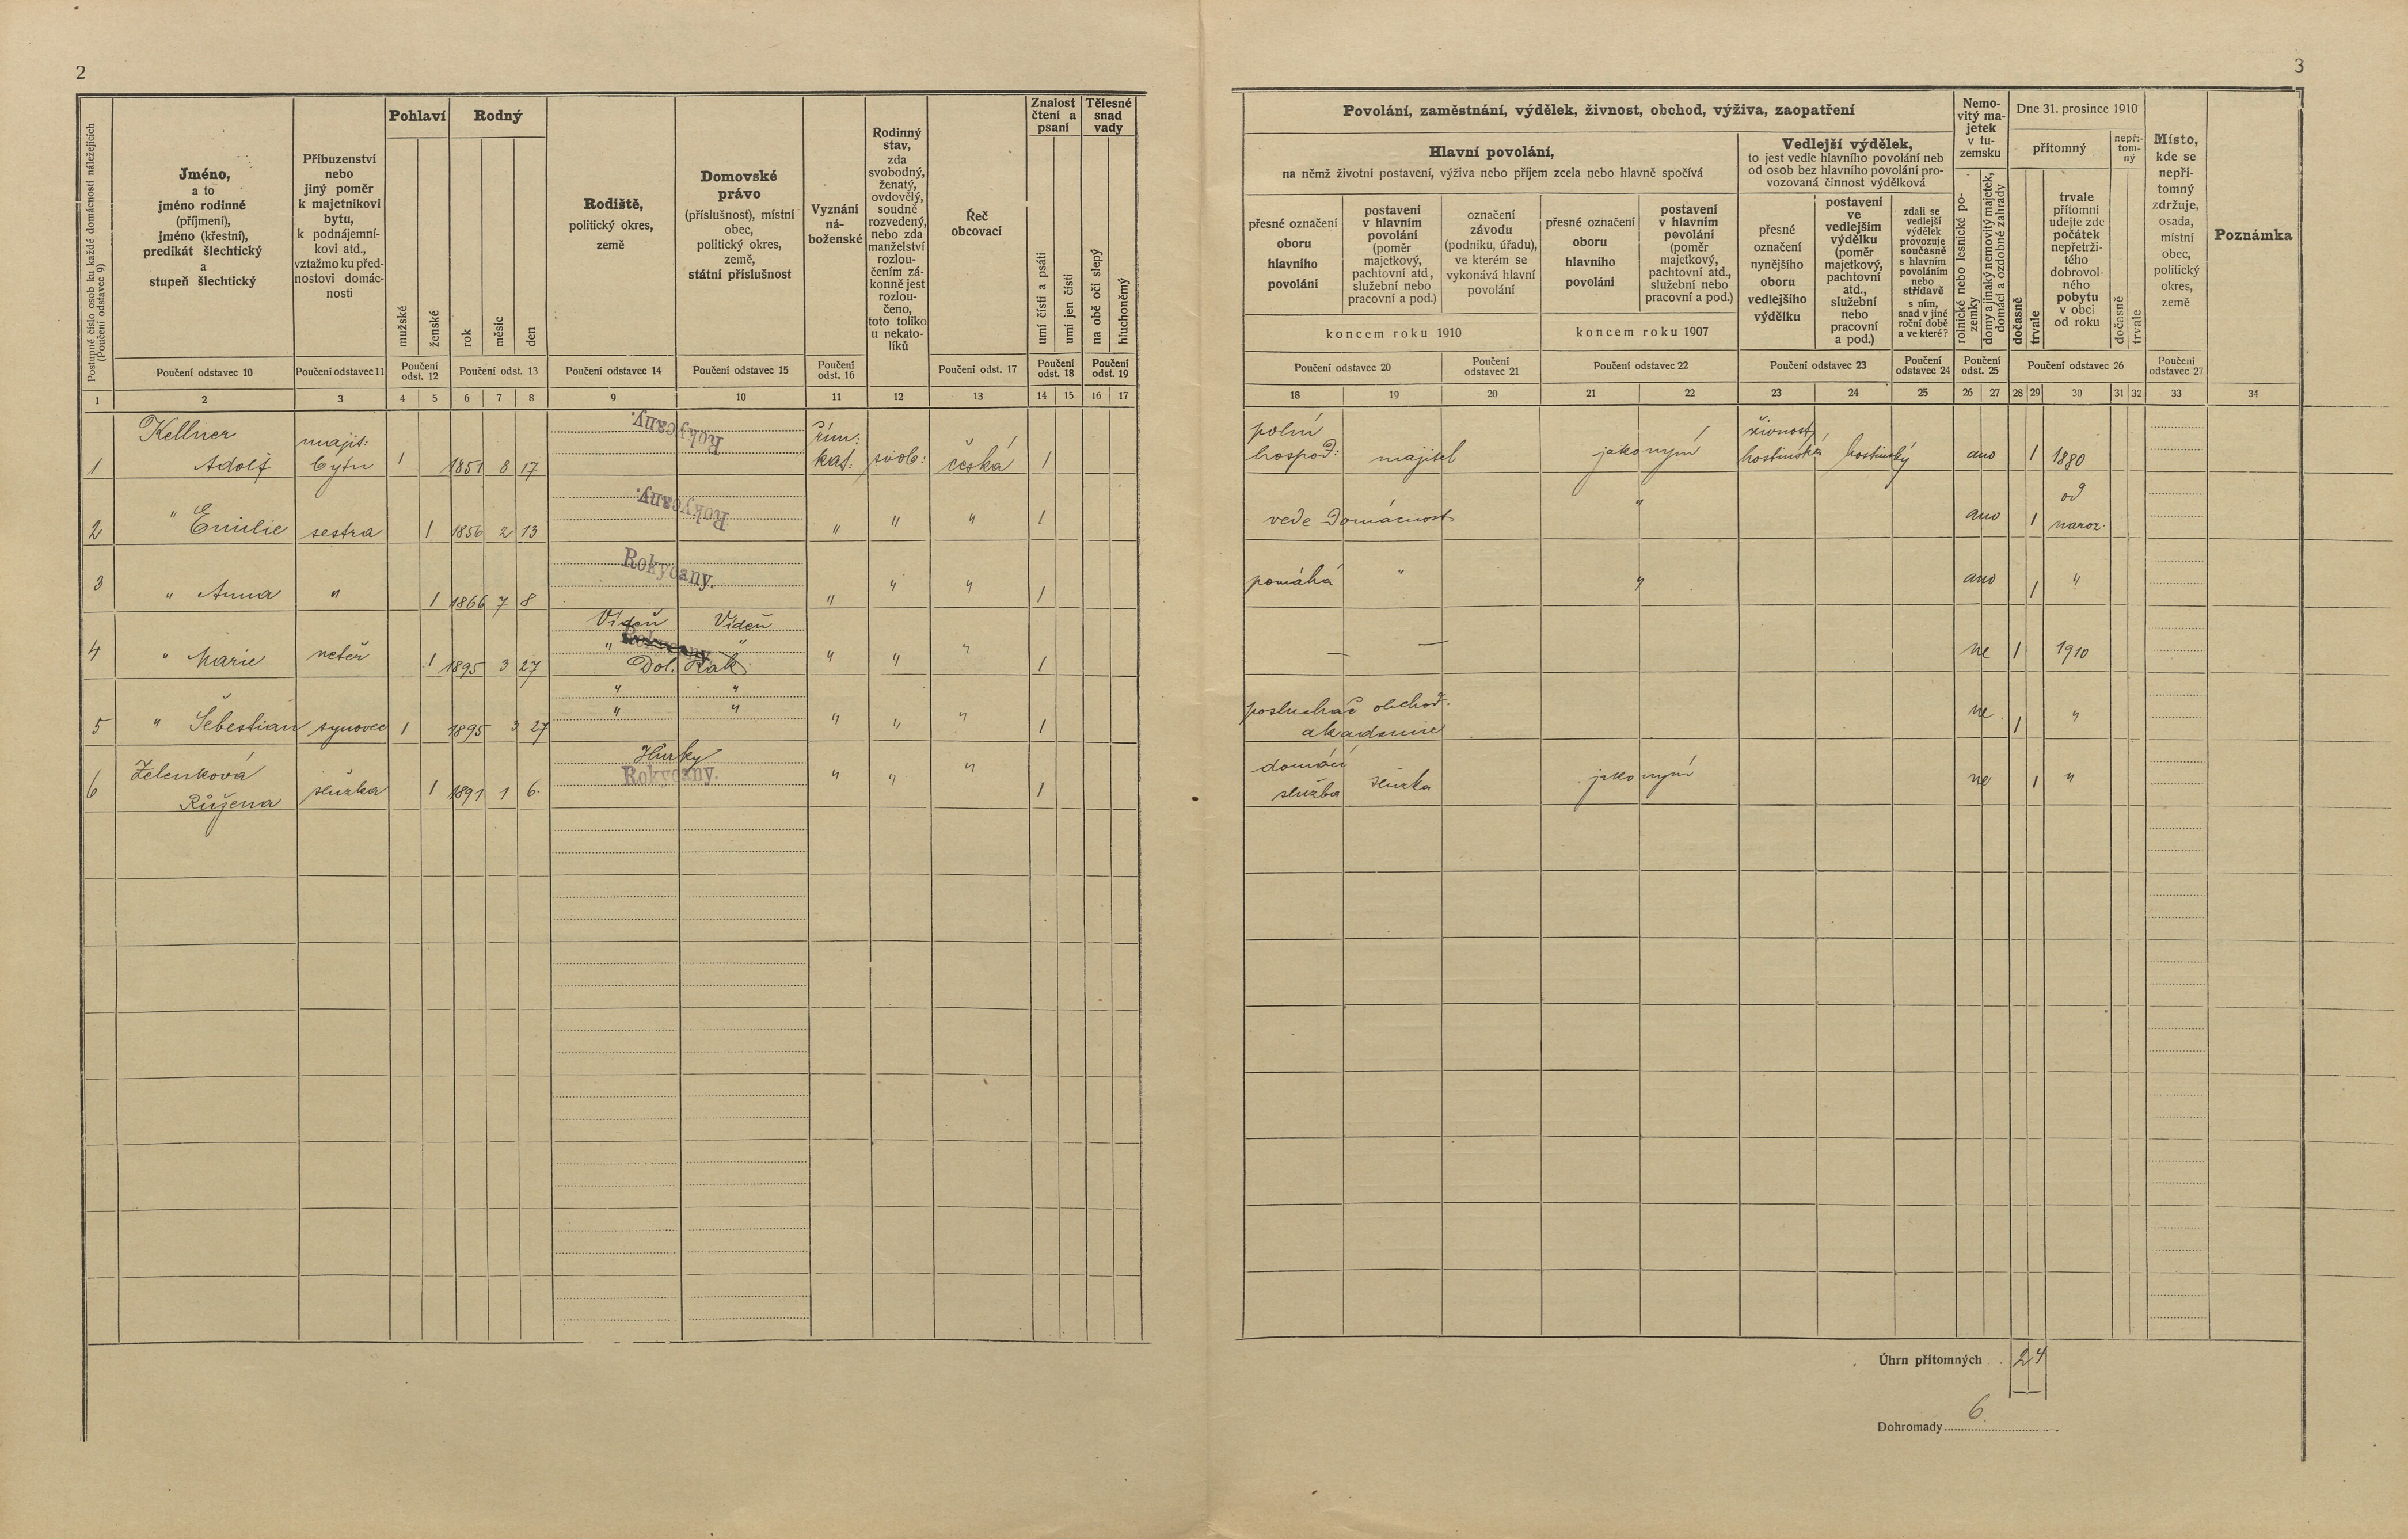 2
3
Postupné číslo osob ku každé domácnosti náležejících
(Poučení odstavec 9)
Jméno,
a to
jméno rodinné
(příjmení),
jméno (křestní),
predikát šlechtický
a
stupeň šlechtický
Příbuzenství
nebo
jiný poměr
k majetníkovi
bytu,
k podnájemní-
kovi atd.,
vztažmo ku před-
nostovi domác-
nosti
Pohlaví
mužské
ženské
Rodný
rok
měsíc
den
Rodiště,
politický okres,
země
Domovské
právo
(příslušnost), místní
obec,
politický okres,
země,
státní příslušnost
Vyznání
ná-
boženské
Rodinný
stav,
zda
svobodný,
ženatý,
ovdovělý,
soudně
rozvedený,
nebo zda
manželství
rozlou-
čením zá-
konně jest
rozlou-
čeno,
toto toliko
u nekato-
líků
Řeč
obcovací
Znalost
čtení a
psaní
umí čísti a psáti
umí jen čísti
Tělesné
snad
vady
na obě oči slepý
hluchoněmý
Poučení odstavec 10
Poučení odstavec 11
Poučení
odst. 12
Poučení odst. 13
Poučení odstavec 14
Poučení odstavec 15
Poučení
odst. 16
Poučení odst. 17
Poučení
odst. 18
Poučení
odst. 19
1 2 3 4 5 6 7 8 9 10 11 12 13 14 15 16 17
Povolání, zaměstnání, výdělek, živnost, obchod, výživa, zaopatření
Hlavní povolání,
na němž životní postavení, výživa nebo příjem zcela nebo hlavně spočívá
přesné označení
oboru
hlavního
povolání
postavení
v hlavním
povolání
(poměr
majetkový,
pachtovní atd.,
služební nebo
pracovní a pod.)
označení
závodu
(podniku, úřadu),
ve kterém se
vykonává hlavní
povolání
koncem roku 1910
přesné označení
oboru
hlavního
povolání
postavení
v hlavním
povolání
(poměr
majetkový,
pachtovní atd.,
služební nebo
pracovní a pod.)
koncem roku 1907
Vedlejší výdělek,
to jest vedle hlavního povolání neb
od osob bez hlavního povolání pro-
vozovaná činnost výdělková
přesné
označení
nynějšího
oboru
vedlejšího
výdělku
postavení
ve
vedlejším
výdělku
(poměr
majetkový,
pachtovní
atd.,
služební
nebo
pracovní
a pod.)
zdali se
vedlejší
výdělek
provozuje
současně
s hlavním
povoláním
nebo
střídavě
s ním,
snad v jiné
roční době
a ve které?
Nemo-
vitý ma-
jetek
v tu-
zemsku
rolnické nebo lesnické po-
zemky
domy a jinaký nemovitý majetek,
domácí a ozdobné zahrady
Dne 31. prosince 1910
přítomný
dočasně
trvale
trvale
přítomní
udejte zde
počátek
nepřetrži-
tého
dobrovol-
ného
pobytu
v obci
od roku
nepří-
tom-
ný
dočasně
trvale
Místo,
kde se
nepří-
tomný
zdržuje,
osada,
místní
obec,
politický
okres,
země
Poznámka
Poučení odstavec 20
Poučení
odstavec 21
Poučení odstavec 22
Poučení odstavec 23
Poučení
odstavec 24
Poučení
odst. 25
Poučení odstavec 26
Poučení
odstavec 27
18 19 20 21 22 23 24 25 26 27 28 29 30 31 32 33 34
Kellner majit: Rokycany. řím: polní živnost
1 Adolf bytu 1 1851 8 17 kat: svob: česká 1 hospod: majitel jako nyní hostinská hostinský ano 1 1880
Rokycany. od
2 " Emilie sestra 1 1856 2 13 " " " 1 vede domácnost " ano 1 naroz.
Rokycany.
3 " Anna " 1 1866 7 8 " " " 1 pomáhá " " ano 1 "
Vídeň Vídeň
" Rokycany "
4 " Marie neteř 1 1895 3 27 Dol. Rak. " " " 1 — — ne 1 1910
" "
" " posluchač obchod.
5 " Šebestian synovec 1 1895 3 27 " " " 1 akademie ne 1 "
Zelenková Hůrky domácí
6 Růžena služka 1 1891 1 6. Rokycany. " " " 1 služba služka jako nyní ne 1 "
Úhrn přítomných . . 2 4
Dohromady 6